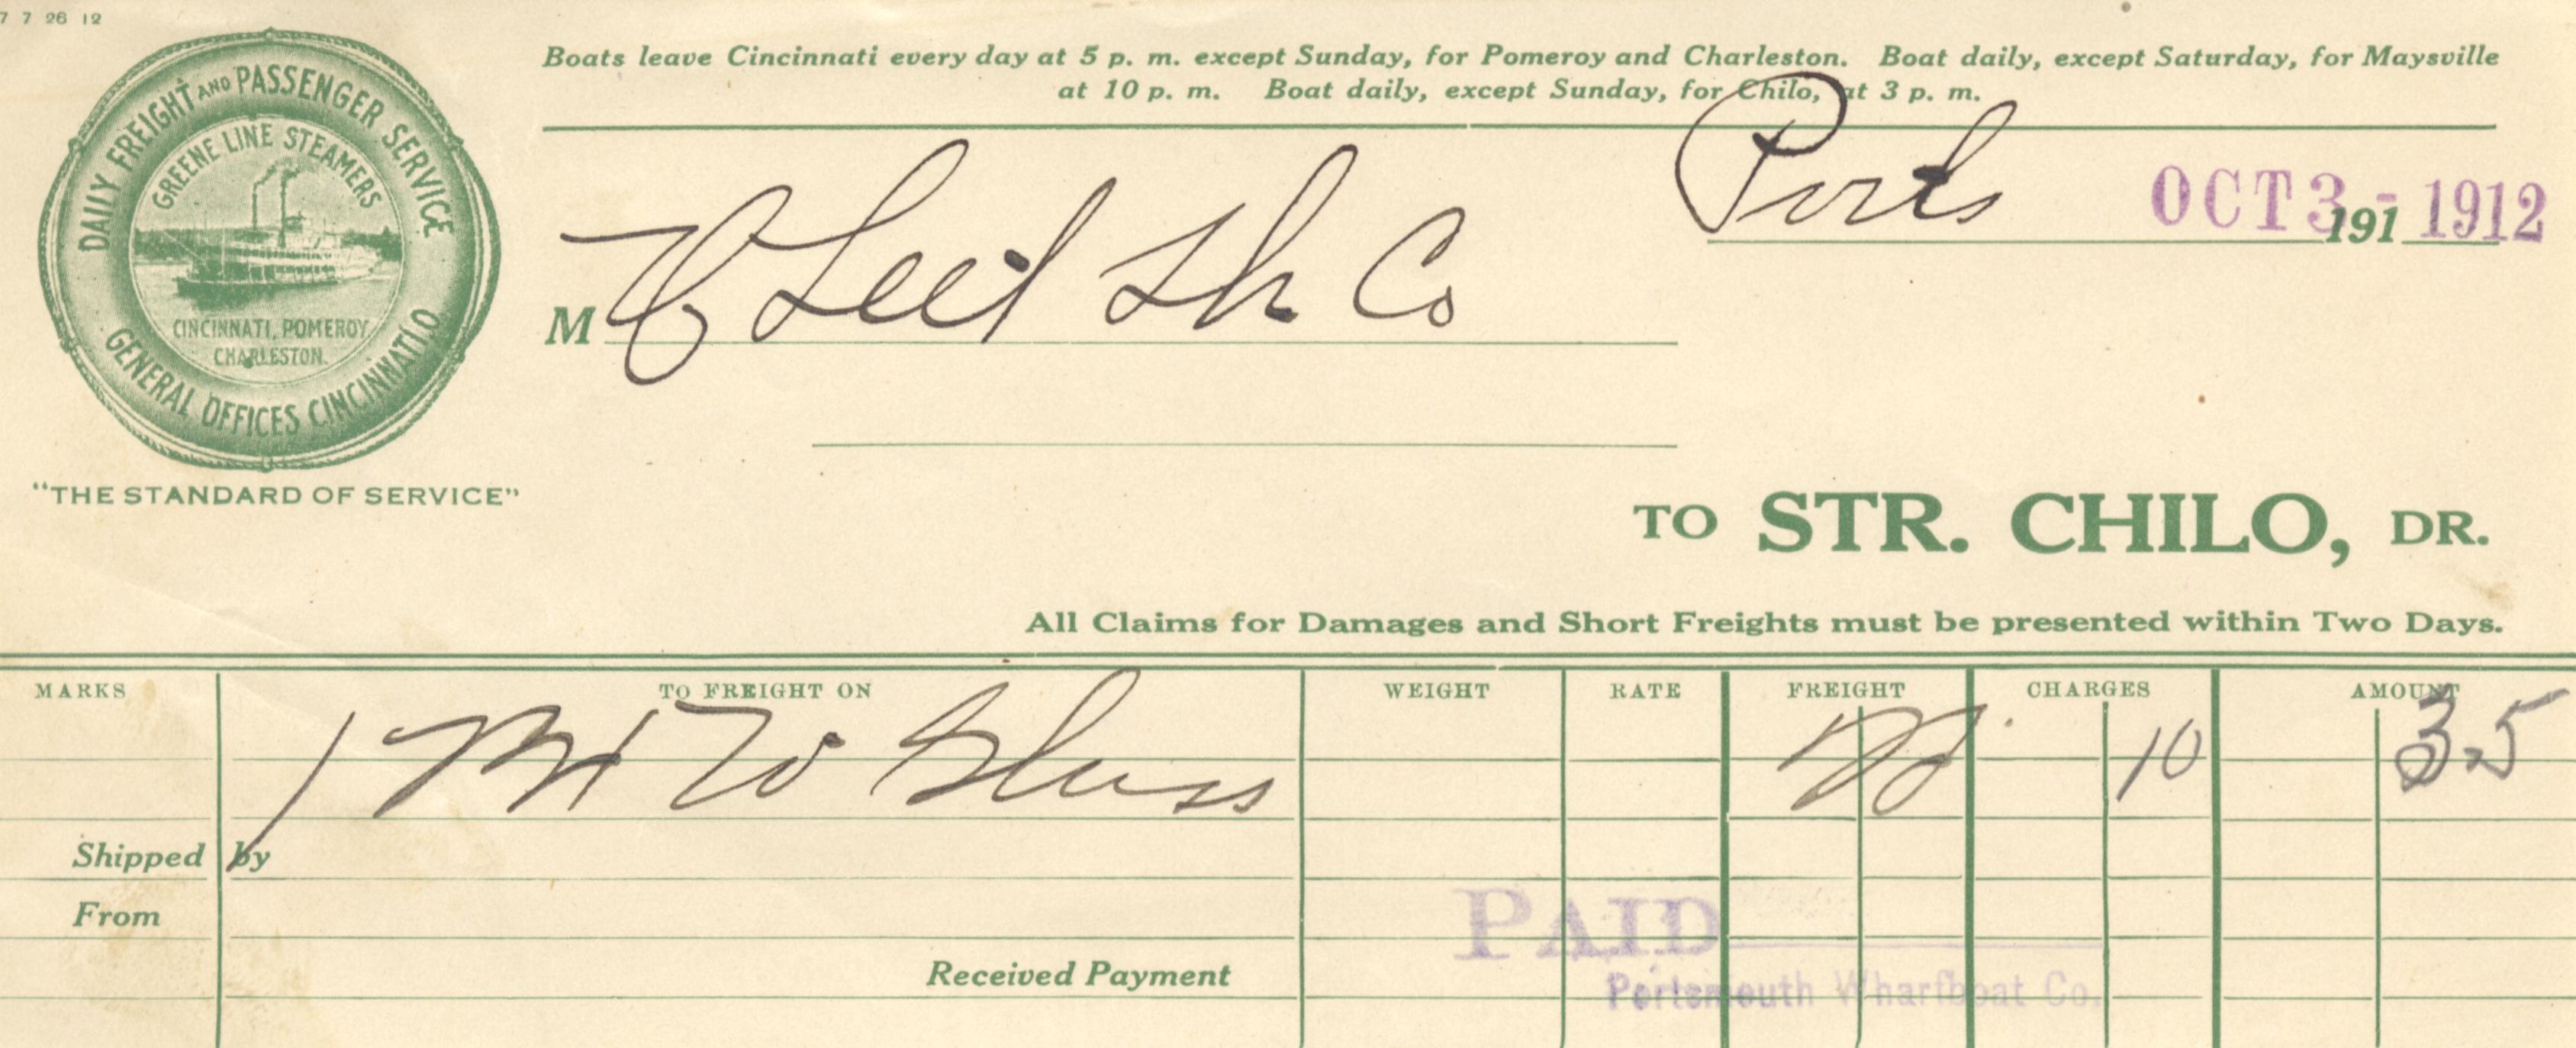 7 7 26 12
DAILY FREIGHT AND PASSENGER SERVICE
GREENE LINE STEAMERS
CINCINNATI, POMEROY,
CHARLESTON.
GENERAL OFFICES CINCINNATI, O
"THE STANDARD OF SERVICE"
Boats leave Cincinnati every day at 5 p. m. except Sunday, for Pomeroy and Charleston. Boat daily, except Saturday, for Maysville
at 10 p. m. Boat daily, except Sunday, for Chilo, at 3 p. m.
Ports OCT 3 - 1912 191
M Co
TO STR. CHILO, DR.
All Claims for Damages and Short Freights must be presented within Two Days.
MARKS TO FREIGHT ON WEIGHT RATE FREIGHT CHARGES AMOUNT
1 W Glass 10 35
Shipped by
From
PAID
Received Payment
Portsmouth Wharfboat Co.